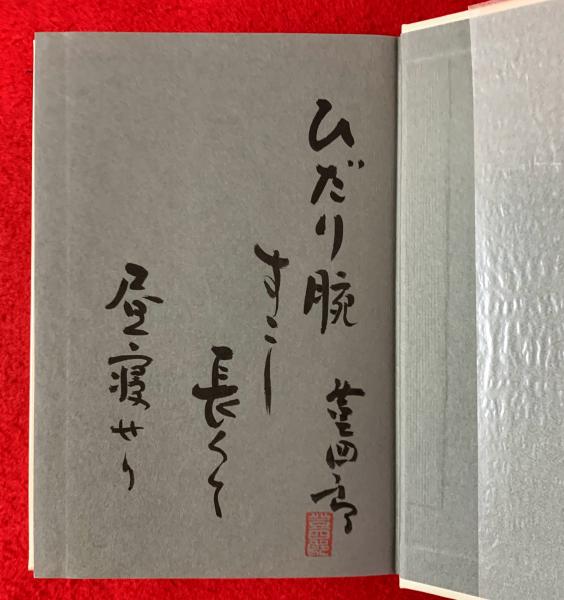 ひだり腕
すこし
長くて
昼寝せり